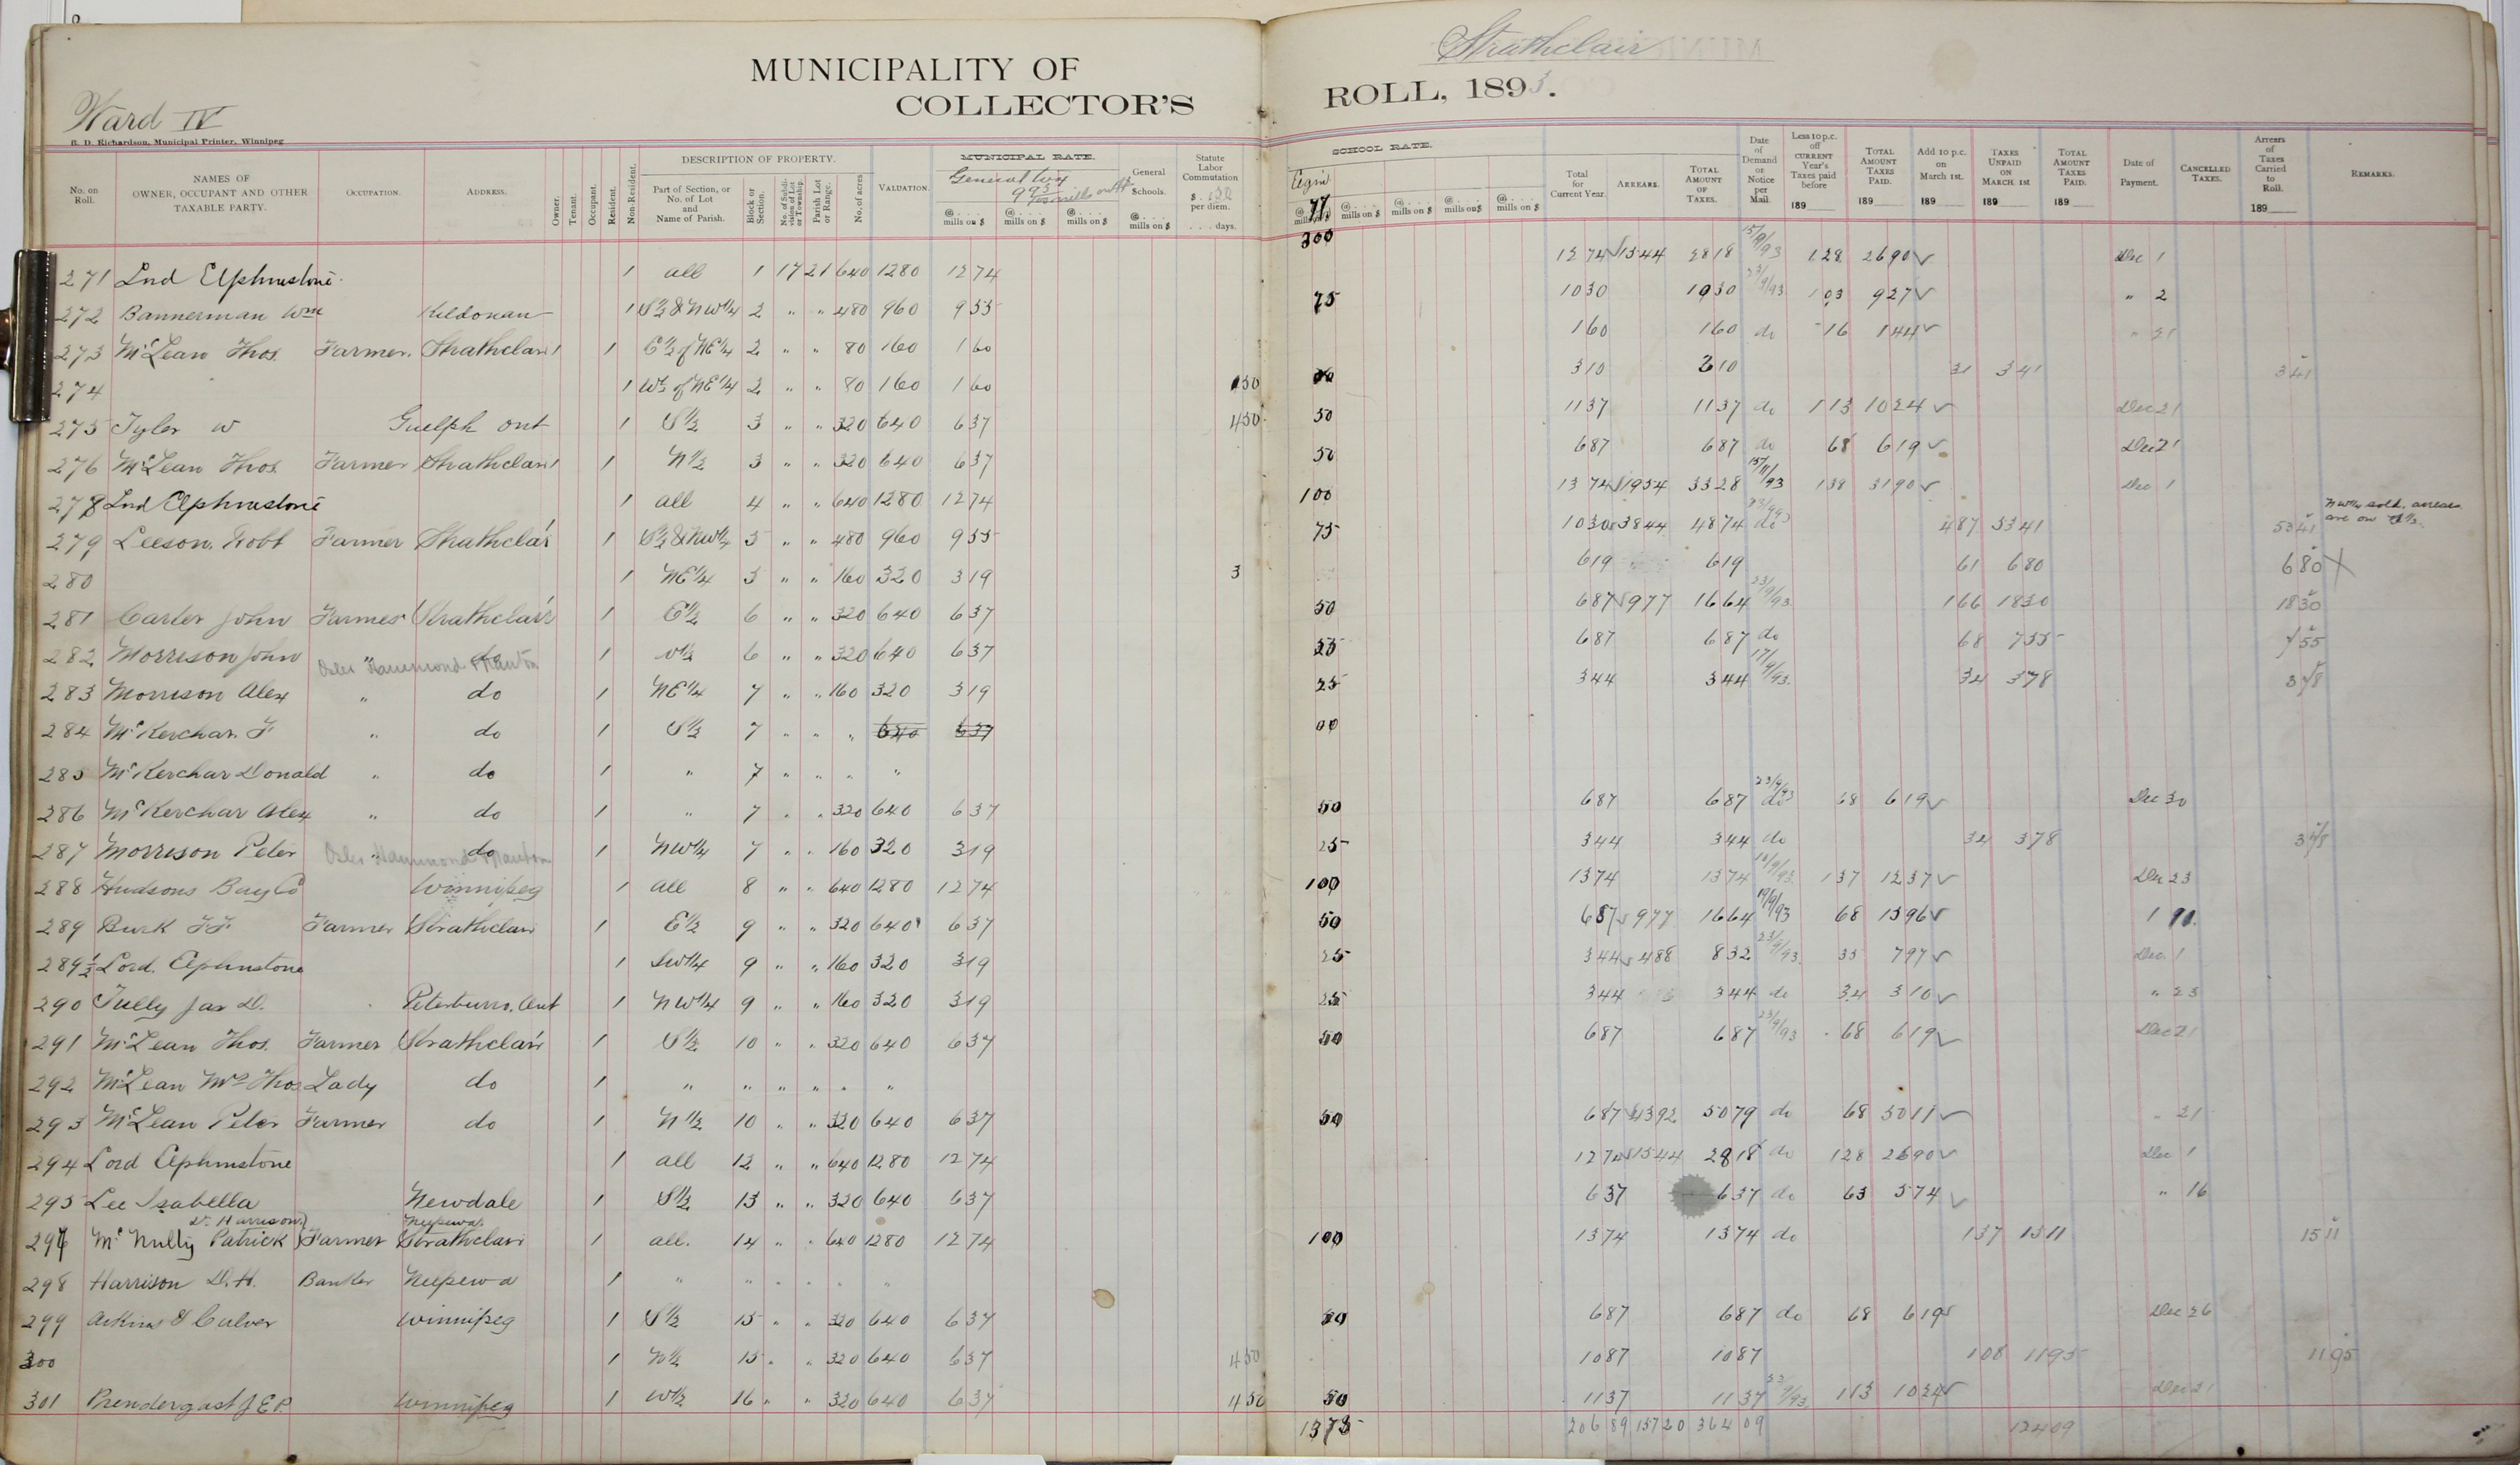 Strathclair
MUNICIPALITY OF
COLLECTOR'S ROLL, 1893.
Ward IV
R. D. Richardson, Municipal Printer, Winnipeg
No. on Roll. NAMES OF OWNER, OCCUPANT AND OTHER TAXABLE PARTY. OCCUPATION. ADDRESS. Owner. Tenant. Occupant. Resident. Non-Resident. DESCRIPTION OF PROPERTY. Part of Section, or No. of Lot and Name of Parish. Block or Section. No. of Subdivision of Lot or Township. Parish Lot or Range. No. of acres VALUATION. MUNICIPAL RATE. General tax @ mills on $ @ mills on $ @ mills on $ General Schools. @ mills on $ Statute Labor Commutation $ 150 per diem. days. SCHOOL RATE. @ mills on $ @ mills on $ @ mills on $ @ mills on $ @ mills on $ Total for Current Year. ARREARS. TOTAL AMOUNT OF TAXES. Date of Demand or Notice per Mail. Less 10 p.c. off CURRENT Year's Taxes paid before 189 TOTAL AMOUNT TAXES PAID. 189 Add 10 p.c. on March 1st. 189 TAXES UNPAID ON MARCH. 1st 189 TOTAL AMOUNT TAXES PAID. 189 Date of Payment. CANCELLED TAXES. Arrears of Taxes Carried to Roll. 189 REMARKS.
271 Lord Elphinstone 1 all 1 17 21 640 1280 1274 1274 1544 2818 15/9/93 128 2690 Dec 1
272 Bannerman Wm Kildonan 1 S½ & NW¼ 2 " " 480 960 955 75 1030 1030 103 927 " 2
273 McLean Thos. Farmer. Strathclair 1 1 E½ of NE¼ 2 " " 80 160 160 160 160 do 16 144 " 21
274 1 W½ of NE¼ 2 " " 80 160 160 150 310 310 31 341 341
275 Tyler W Guelph Ont 1 S½ 3 " " 320 640 637 450 50 1137 1137 do 113 1024 Dec 21
276 McLean Thos. Farmer Strathclair 1 1 N½ 3 " " 320 640 637 50 687 687 do 68 619 Dec 21
278 Lord Elphinstone 1 all 4 " " 640 1280 1274 100 1374 1954 3328 138 3190 Dec 1
279 Leeson, Robt Farmer Strathclair 1 S½ & NW¼ 5 " " 480 960 955 75 1030 3844 4874 do 487 5341 5341 NW¼ sold, arrears are on
280 1 NE¼ 5 " " 160 320 319 3 619 619 61 680 680 X
281 Carter John Farmer Strathclair 1 E½ 6 " " 320 640 637 50 687 977 1664 23/9/93 166 1830 1830
282 Morrison John " do Osler Hammond & Nanton 1 6 " " 320 640 637 687 687 do 68 755 755
283 Morrison Alex " do 1 NE¼ 7 " " 160 320 319 25 344 344 34 378 378
284 McKerchar. F " do 1 S½ 7 " " " 640 637
285 McKerchar Donald " do 1 " 7 " " " "
286 McKerchar Alex " do 1 " 7 " " 320 640 637 50 687 687 do 68 619 Dec 30
287 Morrison Peter " do Osler Hammond & Nanton 1 NW¼ 7 " " 160 320 319 25 344 344 do 34 378 378
288 Hudsons Bay Co Winnipeg 1 all 8 " " 640 1280 1274 100 1374 1374 137 1237 Dec 23
289 Burk Farmer Strathclair 1 E½ 9 " " 320 640 637 50 687 977 1664 19/9/93 68 1596
289½ Lord. Elphinstone 1 SW¼ 9 " " 160 320 319 25 344 488 832 23/9/93 35 797 Dec. 1
290 Tully Jas D. Ont 1 NW¼ 9 " " 160 320 319 25 344 344 do 34 310 " 23
291 McLean Thos. Farmer Strathclair 1 S½ 10 " " 320 640 637 50 687 687 23/9/93 68 619 Dec 21
292 McLean Mrs Thos Lady do 1 " " " " " "
293 McLean Peter Farmer do 1 N½ 10 " " 320 640 637 50 687 4392 5079 do 68 5011 " 21
294 Lord Elphinstone 1 all 12 " " 640 1280 1274 1274 1544 2818 do 128 2690 Dec 1
295 Lee Isabella Newdale 1 S½ 13 " " 320 640 637 637 637 do 63 574 " 16
Dr. Harrison Neepawa
297 McNully Patrick Farmer Strathclair 1 all. 14 " " 640 1280 1274 100 1374 1374 do 137 1511 1511
298 Harrison D. H. Banker Neepewa 1 " " " " " "
299 Aikins & Culver Winnipeg 1 S½ 15 " " 320 640 637 50 687 687 do 68 619 Dec 26
300 1 N½ 15 " " 320 640 637 450 1087 1087 108 1195 1195
301 Prendergast J E P. Winnipeg 1 W½ 16 " " 320 640 637 450 50 1137 1137 113 1024 Dec 21
1375 206 89 157 20 364 09 124 09